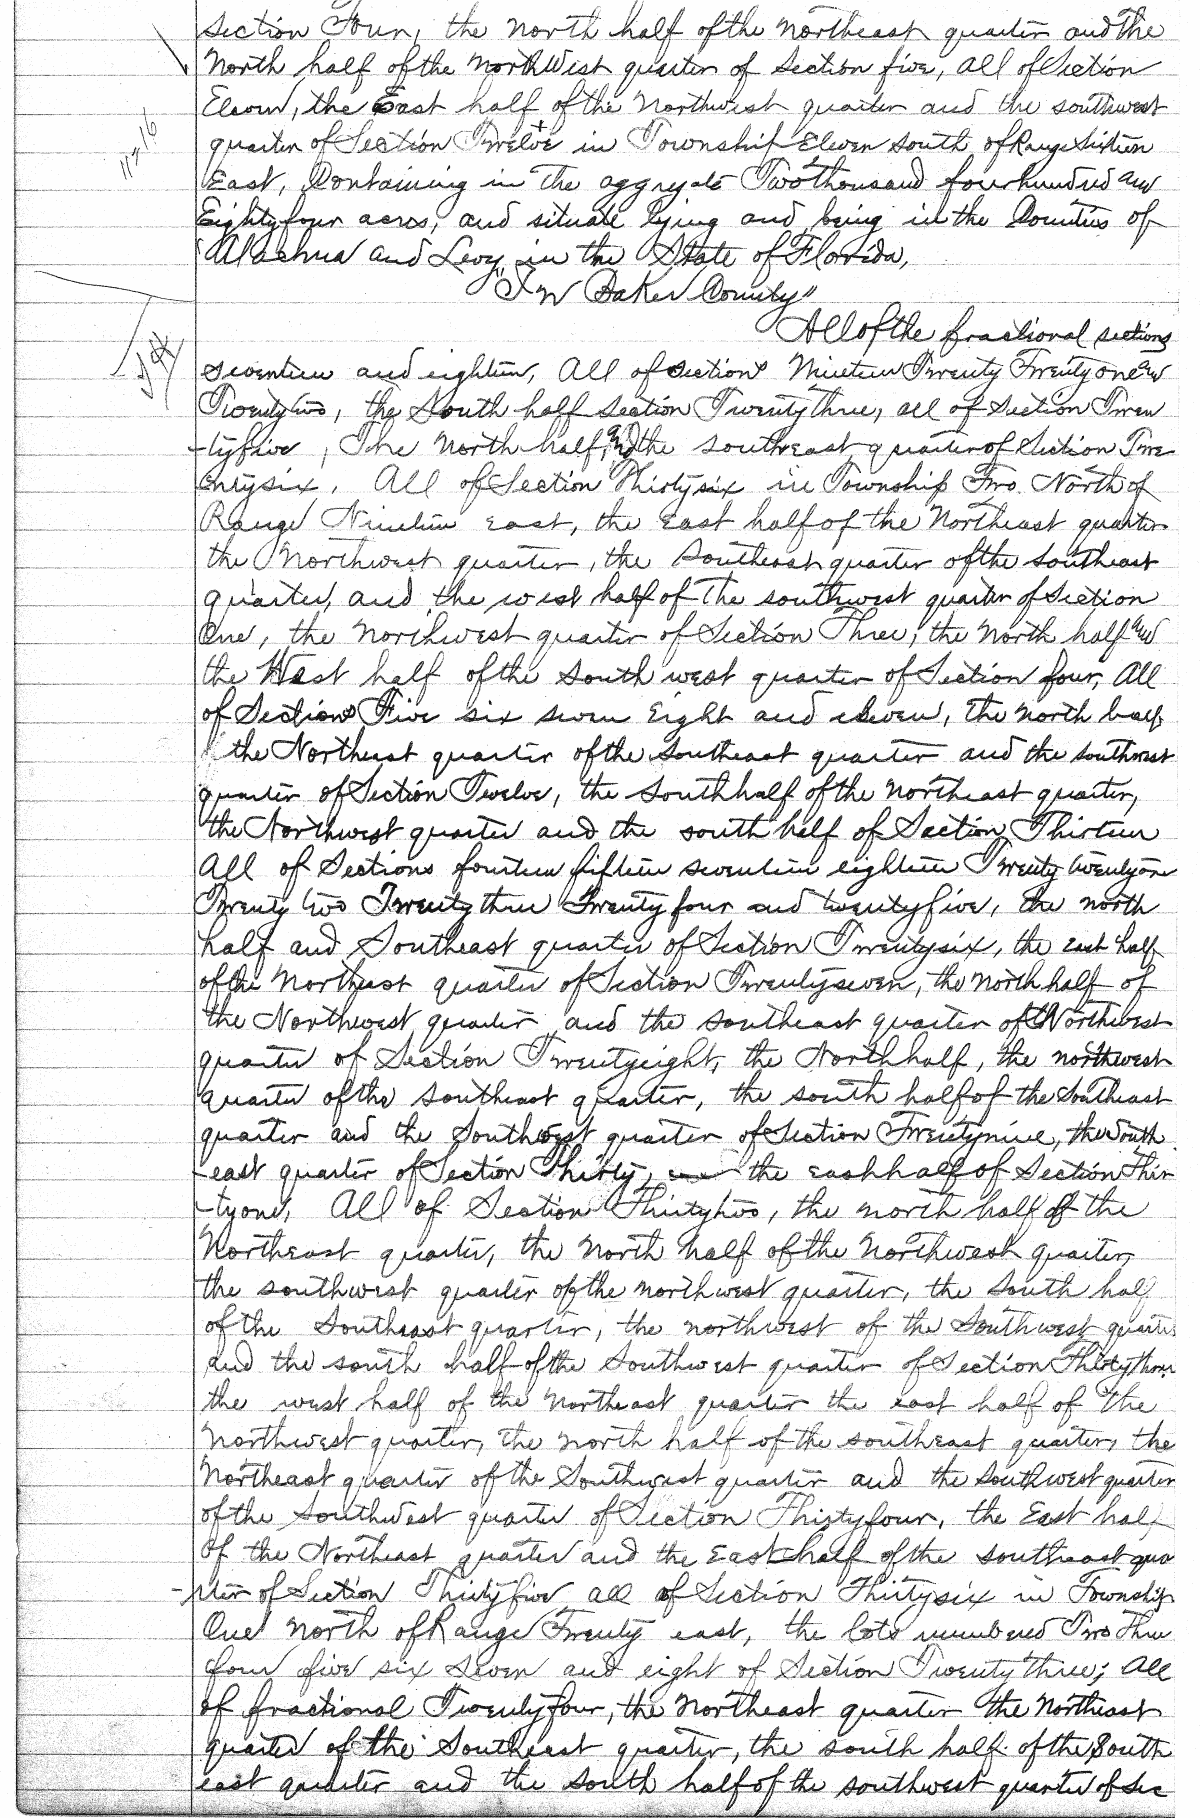 Section Four, the north half of the northeast quarter and the
North half of the northWest quarter of Section five, all of Section
Eleven, the East half of the Northwest quarter and the southwest
quarter of Section Twelve in Township Eleven south of Range Sixteen
11-16
East, Containing in the aggregate Two thousand four hundred and
Eighty four acres, and situate lying and being in the Counties of
Alachua and Levy in the State of Florida,
"In Baker County"
All of the fractional sections
seventeen and eighteen, All of sections Nineteen Twenty Twenty one and
Twenty two, the South half Section Twenty three, all of Section Twen
-ty five, The North half, and the southeast quarter of Section Twe
enty six, All of Section Thirty six in Township Two North of
Range Nineteen east, the East half of the Northeast quarter
the Northwest quarter, the Southeast quarter of the southeast
quarter, and the west half of The southwest quarter of Section
One, the Northwest quarter of Section Three, the North half and
the West half of the South west quarter of Section four, All
of Sections Five six seven Eight and eleven, the north half
the Northeast quarter of the Southeast quarter and the southwest
quarter of Section Twelve, the South half of the Northeast quarter,
the Northwest quarter and the south half of Section Thirteen
All of Sections fourteen fifteen seventeen eighteen Twenty twenty one
Twenty two Twenty three Twenty four and twenty five, the north
half and Southeast quarter of Section Twenty six, the east half
of the Northeast quarter of Section Twenty seven, the north half of
the Northwest quarter and the southeast quarter of the Northwest
quarter of Section Twenty eight, the North half, the northwest
quarter of the southeast quarter, the south half of the Southeast
quarter and the Southwest quarter of Section Twenty nine, the South
-east quarter of Section Thirty, the east half of Section Thir
-ty one, All of Section Thirty two, the north half of the
Northeast quarter, the North half of the Northwest quarter,
the southwest quarter of the northwest quarter, the South half
of the Southeast quarter, the northwest of the Southwest quarter
and the south half of the Southwest quarter of Section Thirty three
the west half of the Northeast quarter the east half of the
Northwest quarter, the north half of the southeast quarter, the
Northeast quarter of the Southwest quarter and the Southwest quarter
of the Southwest quarter of Section Thirty four, the East half
Of the Northeast quarter and the East half of the southeast qua
-rter of Section Thirty five all of Section Thirty six in Township
One North of Range Twenty east, the lots numbered Two Three
four five six seven and eight of Section Twenty three; All
of fractional Twenty four, the Northeast quarter the Northeast
quarter of the Southeast quarter, the south half of the South
east quarter and the south half of the southwest quarter of Sec